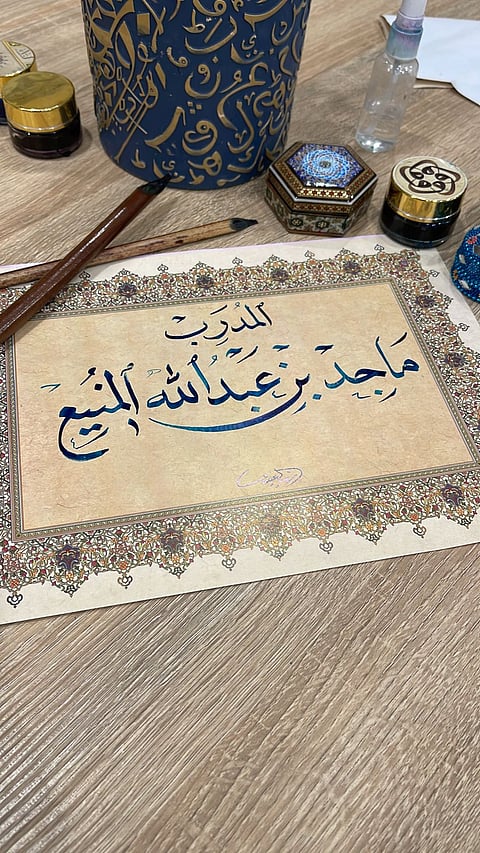 المُدَرِبْ
مَاجِدْ بِنْ عَبْدُاللّٰه المَنِيعْ